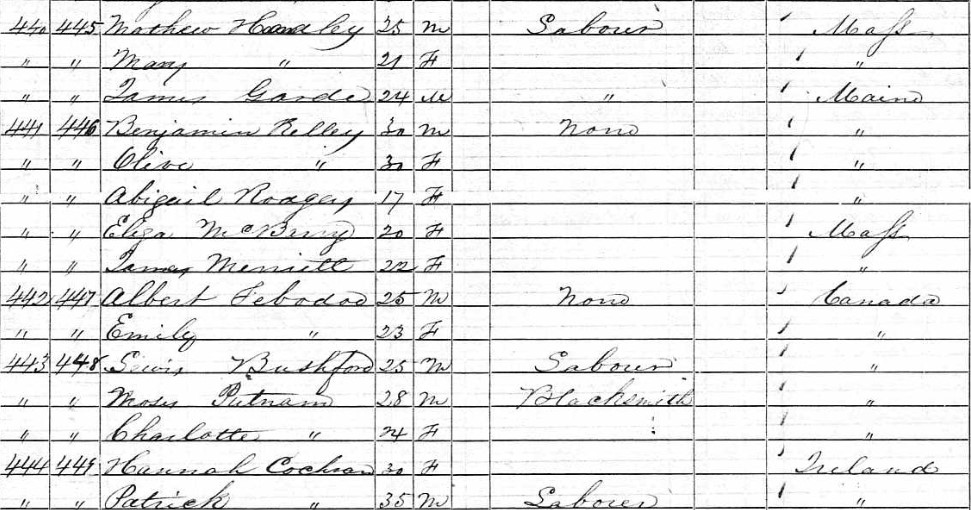 440 445 Mathew Handley 25 M Labourer / Mass
" " Mary " 21 F / "
" " James Garde 24 M " / Maine
441 446 Benjamin Kelley 30 M None / "
" " Olive " 30 F / "
" " Abigail Rodgers 17 F / "
" " Eliza McBurry 20 F / Mass
" " James Merriett 22 F / "
442 447 Albert Febodoo 25 M None / Canada
" " Emily " 23 F / "
443 448 Lewis Bushford 25 M Labourer / "
" " Moses Putnam 28 M Blacksmith / "
" " Charlotte " 24 F / "
444 449 Hannah Cochran 30 F / Ireland
" " Patrick " 35 M Labourer / "